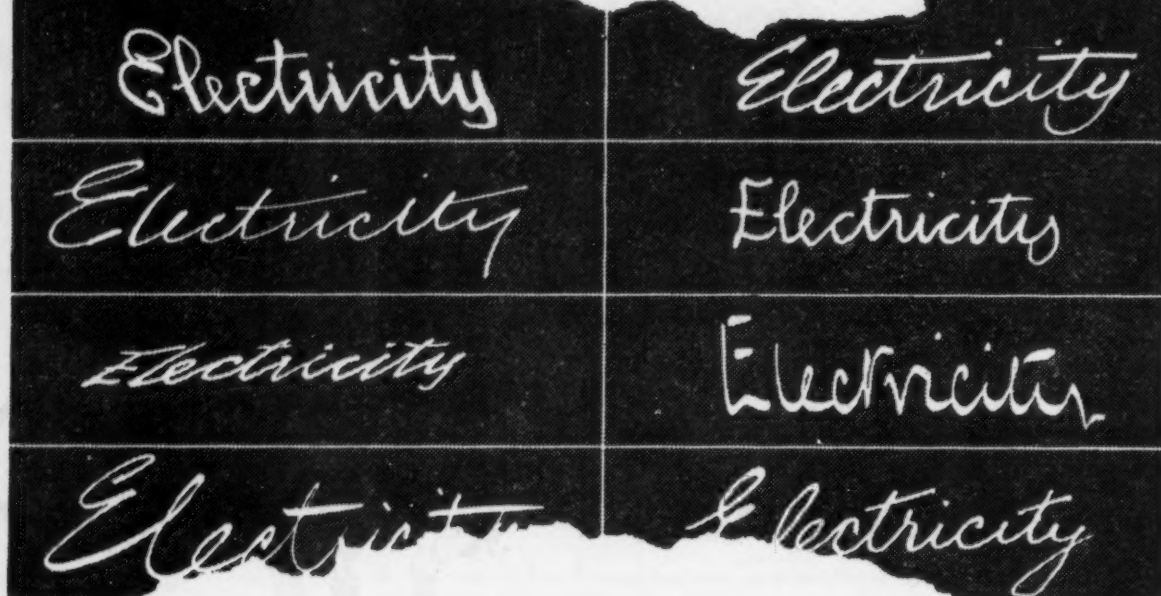 Electricity Electricity
Electricity Electricity
Electricity Electricity
Electricity Electricity